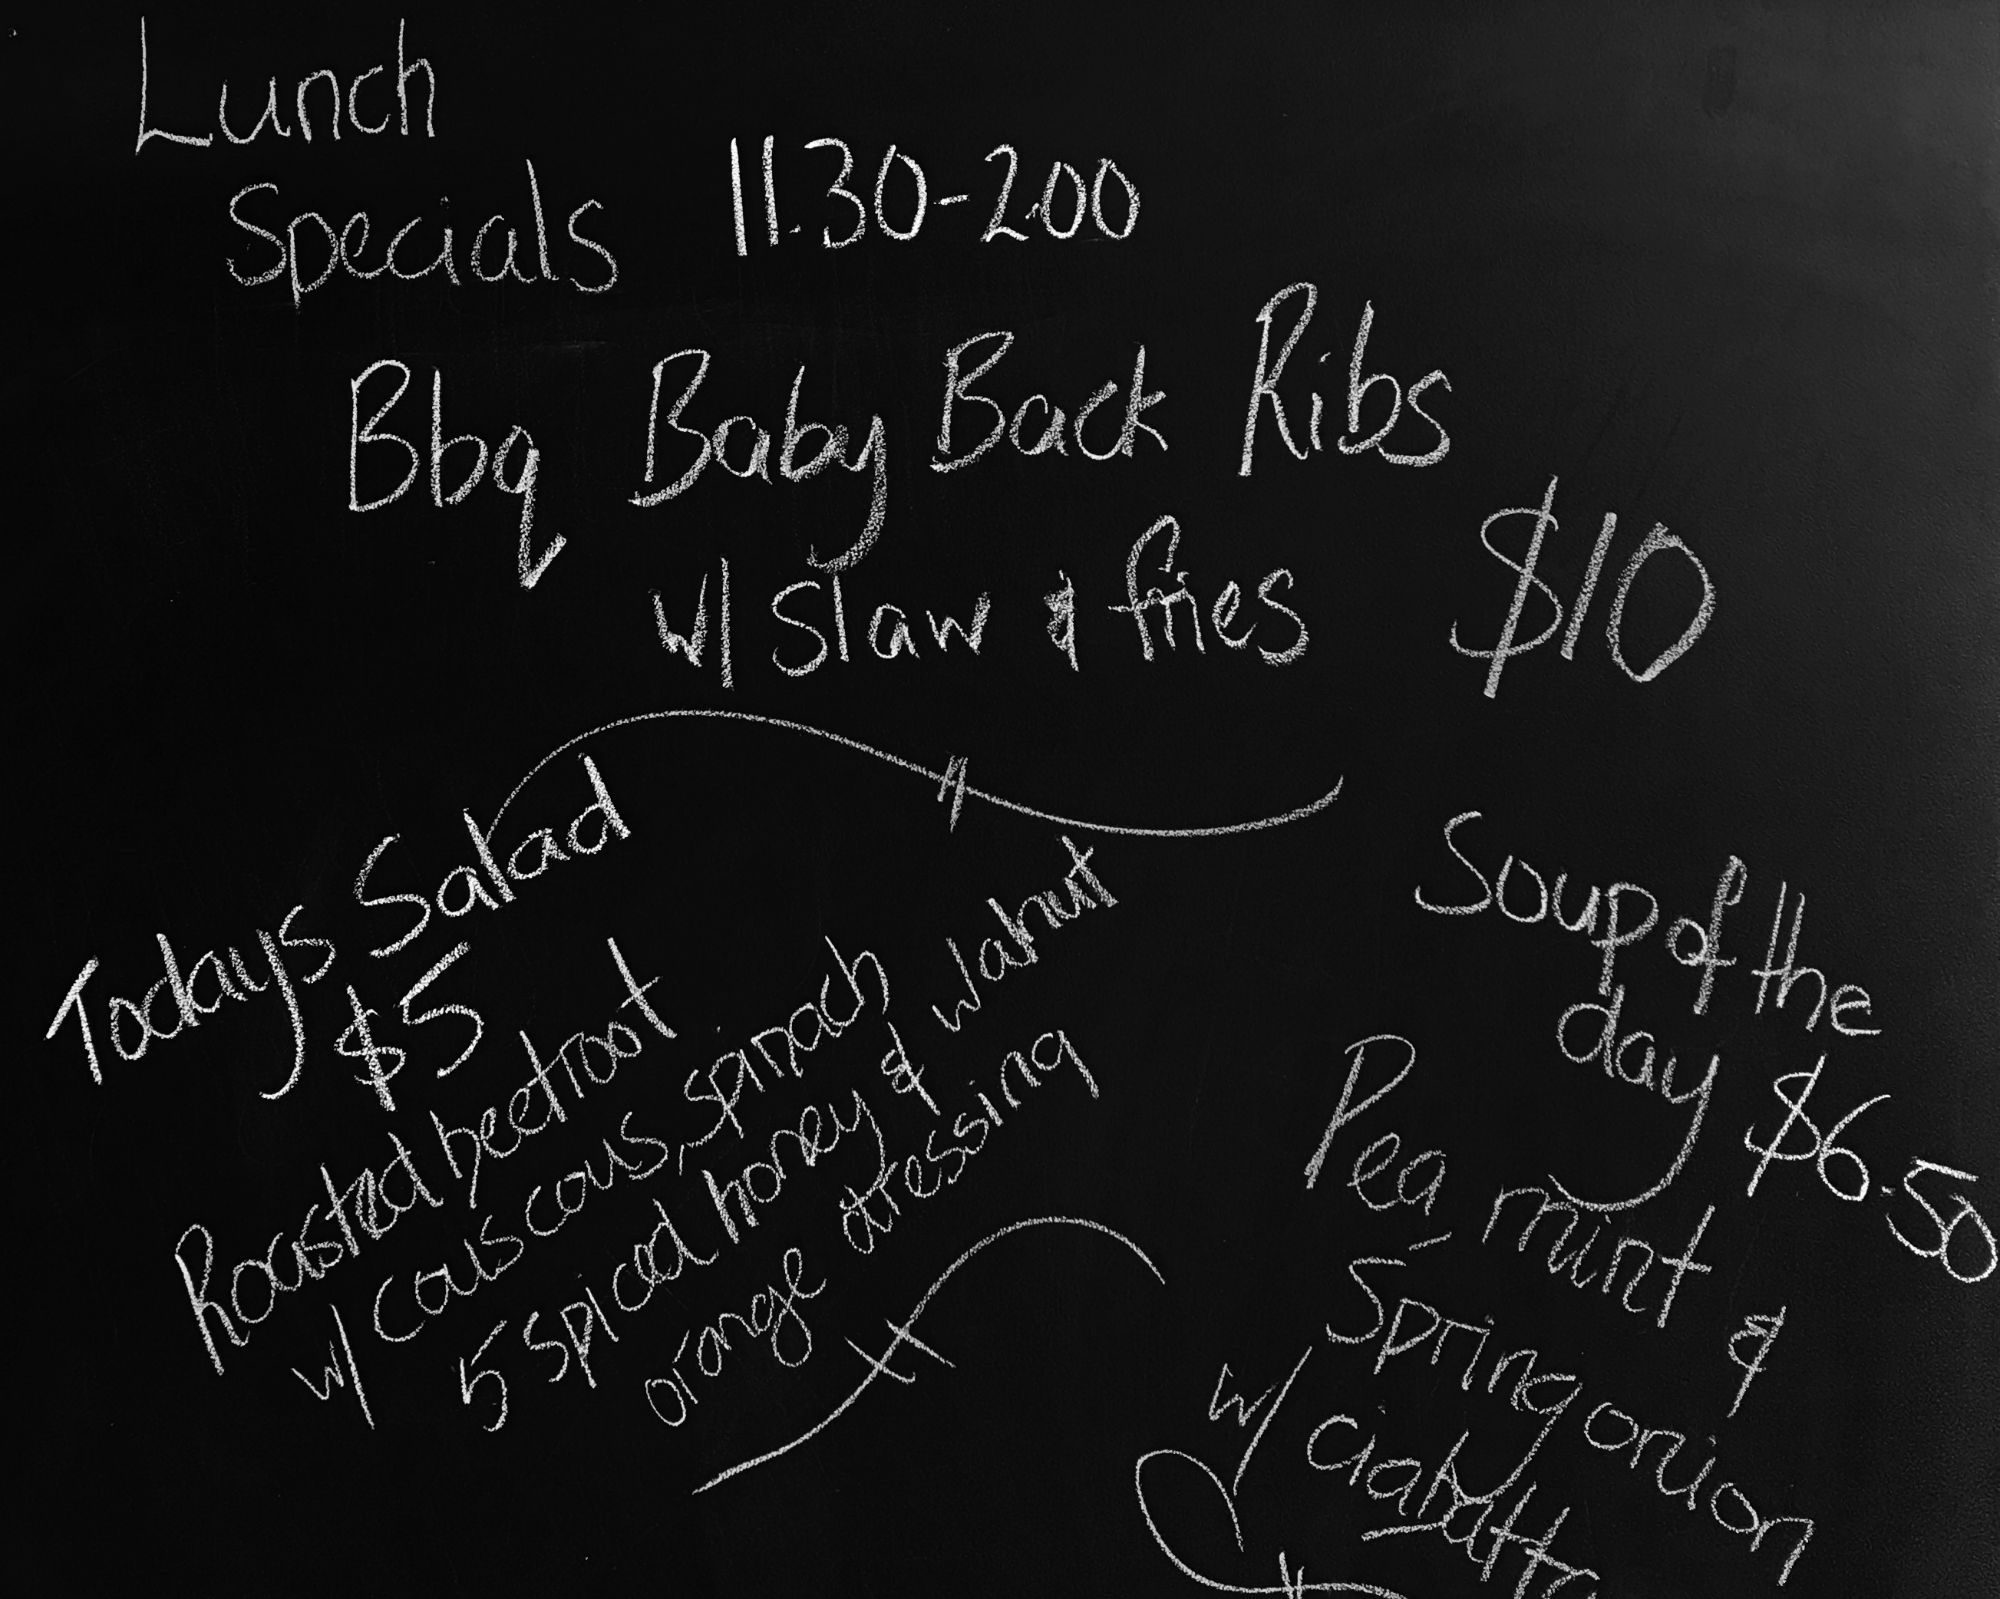 Lunch
Specials 11.30-2.00
Bbq Baby Back Ribs
w/ slaw & fries $10
Todays Salad
$5
Roasted beetroot
w/ cous cous, spinach
5 spiced honey & walnut
orange dressing
Soup of the
day $6.50
Pea, mint &
Spring onion
w/ ciabatta